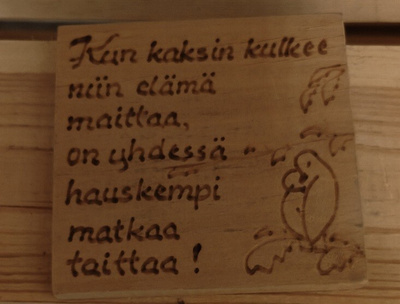 Kun kaksin kulkee
niin elämä
maittaa,
on yhdessä
hauskempi
matkaa
taittaa !